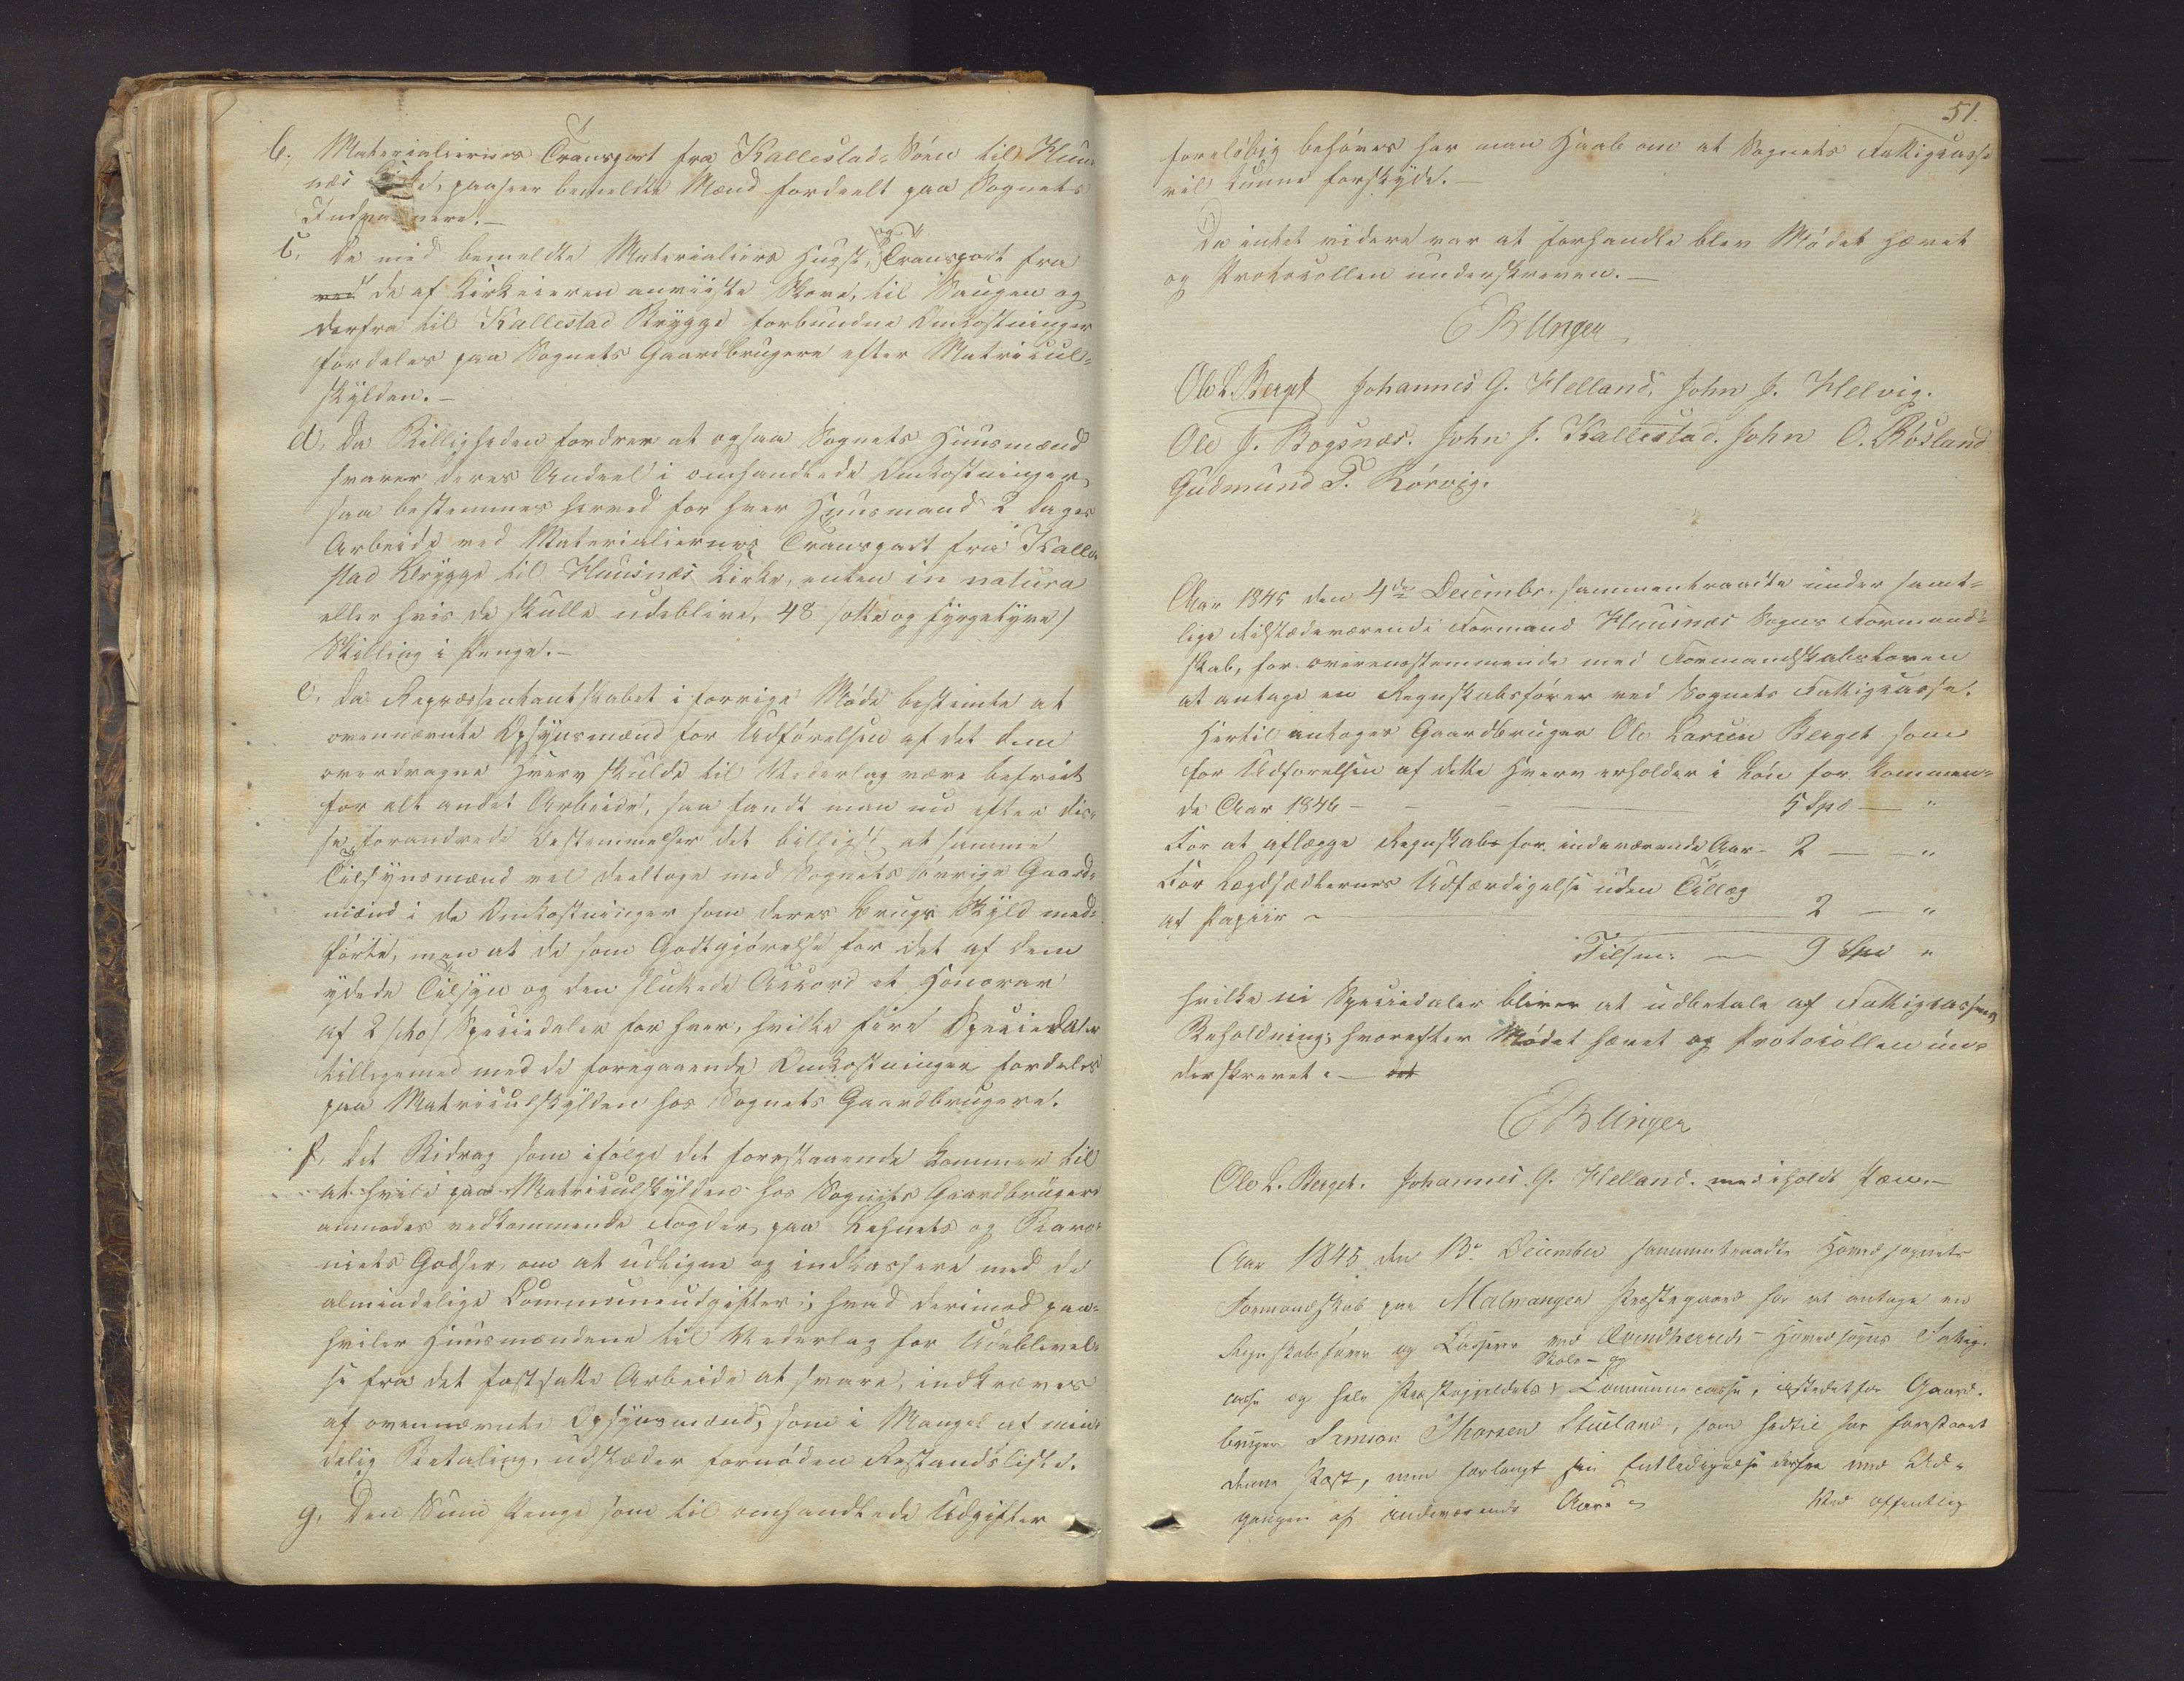 b. Materialiernes Transport fra Kallestad-Söen til Huus-
næs Kirke, paasees bemeldte Mænd fordeelt paa Sognets
Indvaanere.—
c. De med bemeldte Materialiers Hugst, og Transport fra
ved de af Kirkeieren anviiste Skove, til Saugen og
derfra til Kallestad Brygge forbundne Omkostninger
fordeles paa Sognets Gaardbrugere efter Matricul-
skylden.—
d, Da Billigheden fordrer at ogsaa Sognets Huusmænd
svarer deres Andeel i omhandlede Omkostninger,
saa bestemmes herved for hver Huusmand 2 Dages
Arbeide ved Materialiernes Transport fra Kalle-
stad Brygge til Huusnæs Kirke, enten in natura
eller hvis de skulle udeblive, 48 /otte og fyrgetyve/
Skilling i Penge.—
e, Da Repræsentantskabet i forrige Møde bestemte at
ovennævnte Opsynsmænd for Udførelsen af det dem
overdragne Hverv skulde til Vederlag være befriet
for alt andet Arbeide, saa fandt man nu efter dis-
se forandrede Bestemmelser det billigst at samme
Tilsynsmænd vel deeltoge med Sognets øvrige Gaard-
mænd i de Omkostninger som deres Brugs Skyld med-
førte, men at de som Godtgjørelse for det af dem
ydede Tilsyn og den sluttede Accord et Honorar
af 2 /to/ Speciedaler for hver, hvilke fire Speciedaler
tilligemed med de foregaaende Omkostninger fordeles
paa Matriculskylden hos Sognets Gaardbrugere.
f, Det Bidrag som ifølge det forestaaende kommer til
at hvile paa Matriculskylden hos Sognets Gaardbrugere
anmodes vedkommende Fogder, paa Lehnets og Baro-
niets Godser, om at udligne og indkassere med de
almindelige Communeudgifter; hvad derimod paa-
hviler Huusmændene til Vederlag for Udeblivel-
se fra det fastsatte Arbeide at svare, indkræves
af ovennævnte Opsynsmænd, som i Mangel af min-
delig Betaling, udstæder fornøden Restandsliste.
g, Den Sum Penge som til omhandlede Udgifter
51.
foreløbig behøves har man Haab om at Sognets Fattigkasse
vil kunne forskyde.—
Da intet videre var at forhandle blev Mødet hævet
og Protocollen underskreven.—
E B Unger
Ole L. Berget Johannes G. Helland, John J. Helvig.
Ole J. Bogsnæs. John J. Kallestad. John O. Røsland
Gudmund T. Rörvig.
Aar 1845 den 4de Decembr. sammentraadte under samt-
lige tilstædeværende Formænd Huusnæs Sogns Formand-
skab, for overensstemmende med Formandskabsloven
at antage en Regnskabsfører ved Sognets Fattigkasse.
Hertil antoges Gaardbruger Ole Larsen Berget som
for Udførelsen af dette Hverv erholder i Løn for kommen-
de Aar 1846 — — — — 5 Spd — "
For at aflægge Regnskab for indeværende Aar - 2 — — "
For Lægdsædlernes Udfærdigelse uden Tillæg
af Papiir — 2 — "
Tilsm. — 9 Spd "
hvilke ni Speciedaler bliver at udbetale af Fattigkassens
Beholdning; hvorefter Mødet hævet og Protocollen un-
derskrevet.—
E B Unger
Ole L. Berget. Johannes G. Helland. med iholdt Pen.—
Aar 1845 den 13de December sammentraadte Hovedsognets
Formandskab paa Malmangen Præstegaard for at antage en
Regnskabsfører og Casserer ved Qvindherreds-Hovedsogns Fattig-
casse og hele Præstegjeldets Skole- og Communecasse, istedetfor Gaard-
bruger Samson Thorsen Stueland, som hidtil har forestaaet
denne Post, men forlangt sin Entledigelse derfra med Ud-
gangen af indeværende Aar. — Ved offentlig